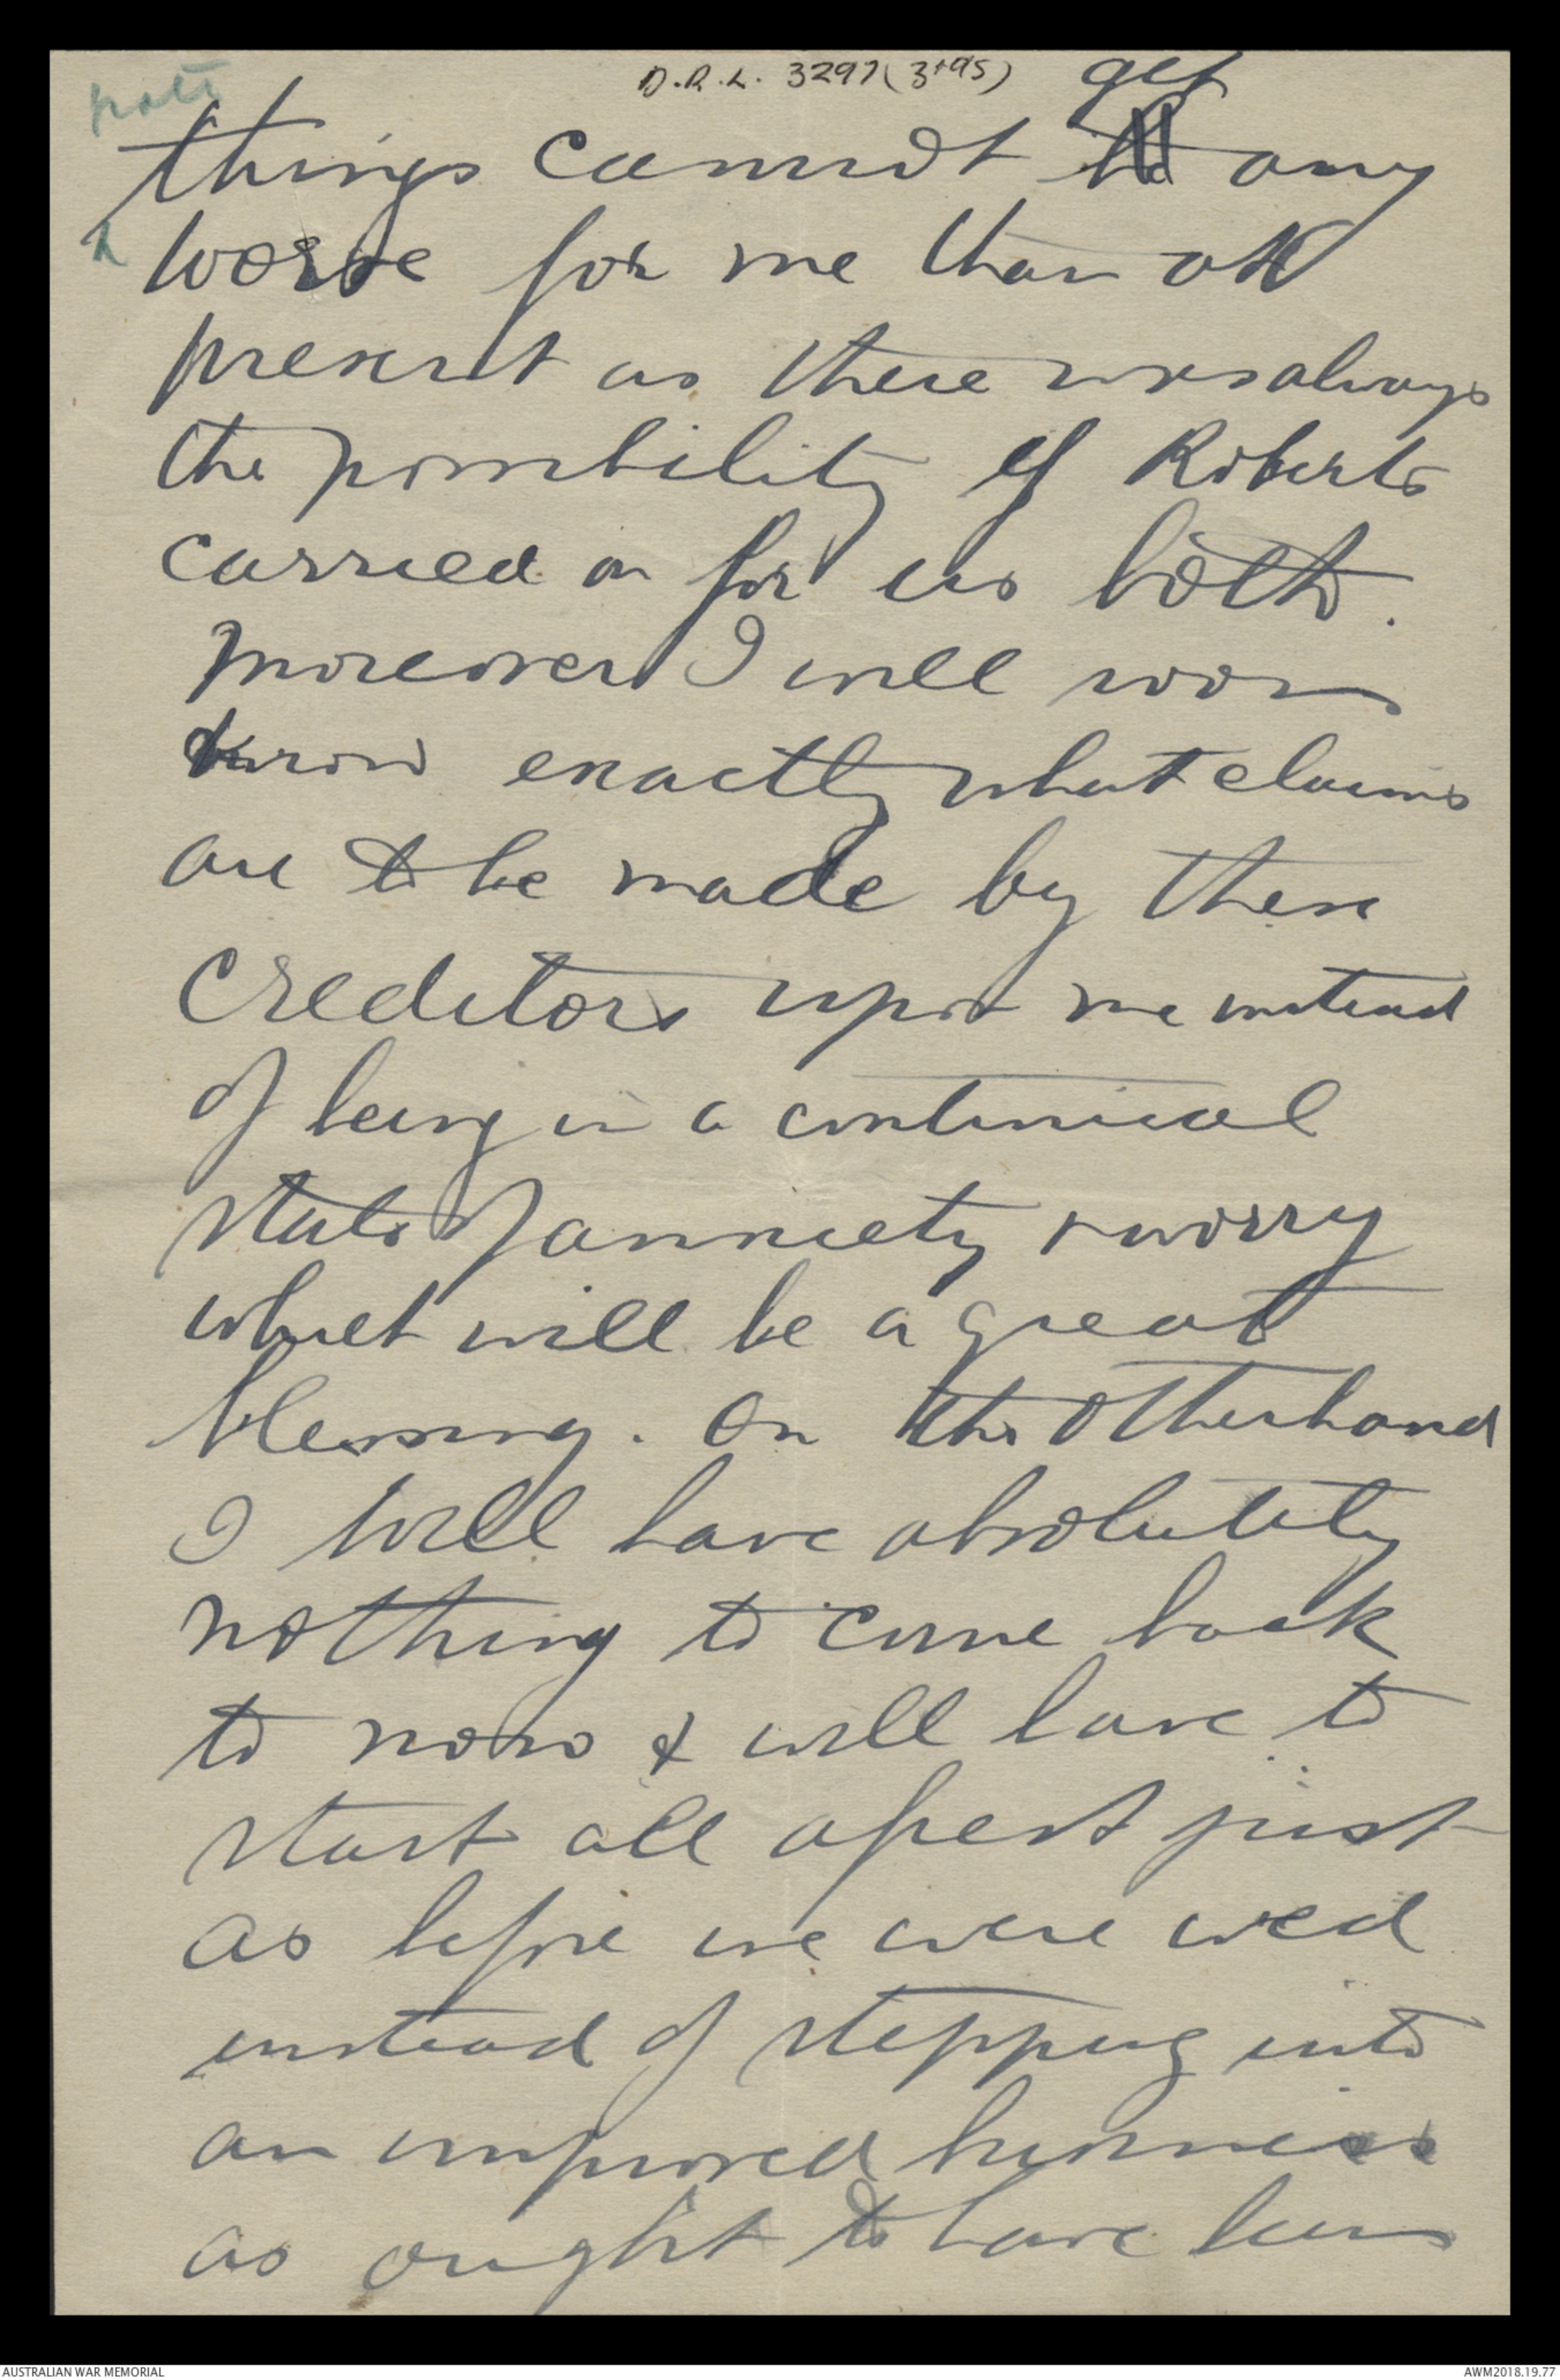 D.R.L. 3297 (3rd 95)
get
things cannot any
worse for me than at
present as there was always
the possibility if Roberts
carried on for us both.
Moreover I will soon
know exactly what claims
are to be made by these
creditors upon me instead
of being in a continual
state of anxiety & worry
what will be a great
blessing. On the otherhand
I will have absolutely
nothing to come back
to now & will have to
start all afresh just
as before we were wed
instead of stepping into
an improved business
as ought to have been
AUSTRALIAN WAR MEMORIAL
AWM2018.19.77